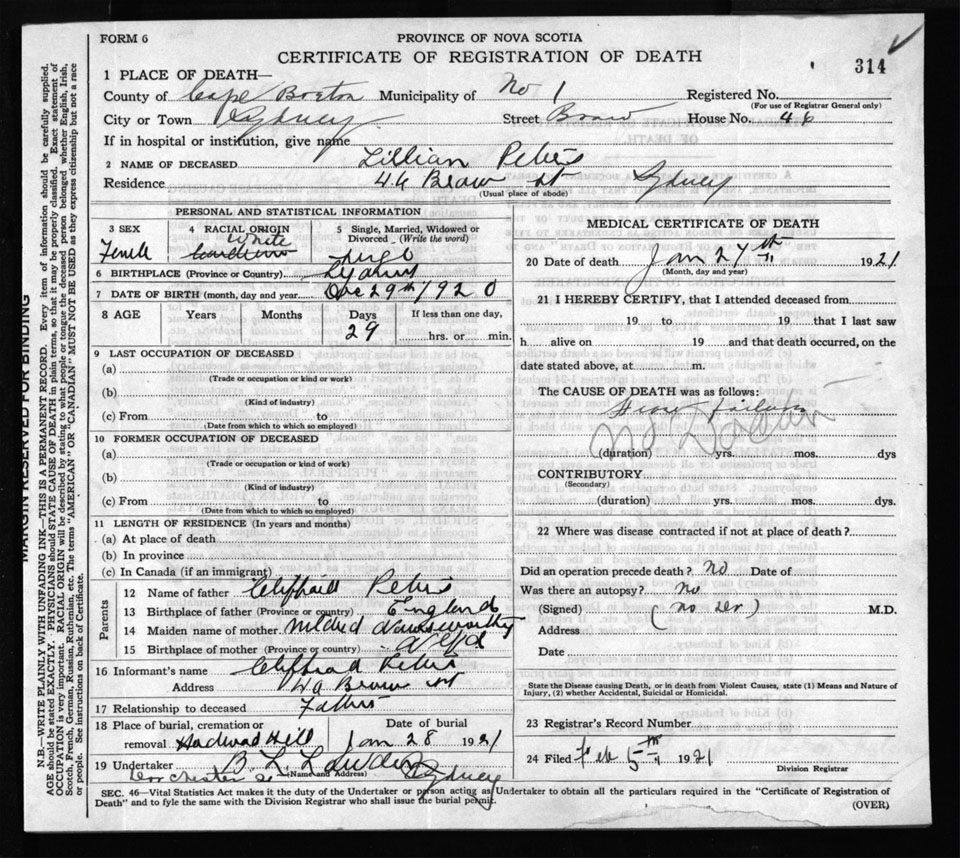 FORM 6
PROVINCE OF NOVA SCOTIA
CERTIFICATE OF REGISTRATION OF DEATH
314
1 PLACE OF DEATH—
County of Cape Breton Municipality of No 1 Registered No.
(For use of Registrar General only)
City or Town Sydney Street House No. 46
If in hospital or institution, give name
2 NAME OF DECEASED Lillian Peters
Residence 46 St Sydney
(Usual place of abode)
PERSONAL AND STATISTICAL INFORMATION
3 SEX
4 RACIAL ORIGIN
5 Single, Married, Widowed or Divorced (Write the word)
White
6 BIRTHPLACE (Province or Country) Sydney
7 DATE OF BIRTH (month, day and year) Dec 29th 1920
8 AGE Years Months Days If less than one day,
29 hrs. or min.
9 LAST OCCUPATION OF DECEASED
(a)
(Trade or occupation or kind or work)
(b)
(Kind of industry)
(c) From to
(Date from which to which so employed)
10 FORMER OCCUPATION OF DECEASED
(a)
(Trade or occupation or kind of work)
(b)
(Kind of industry)
(c) From to
(Date from which to which so employed)
11 LENGTH OF RESIDENCE (In years and months)
(a) At place of death
(b) In province
(c) In Canada (if an immigrant)
Parents
12 Name of father Peters
13 Birthplace of father (Province or country) England
14 Maiden name of mother Mildred
15 Birthplace of mother (Province or country)
16 Informant's name Peters
Address
17 Relationship to deceased Father
18 Place of burial, cremation or removal Hardwood Hill
Date of burial
Jan 28 1921
19 Undertaker
(Name and Address) Sydney
Dorchester St
MEDICAL CERTIFICATE OF DEATH
20 Date of death Jan 27th 1921
(Month, day and year)
21 I HEREBY CERTIFY, that I attended deceased from
19 to 19 that I last saw
h alive on 19 and that death occurred, on the
date stated above, at m.
The CAUSE OF DEATH was as follows:
Heart failure
No Doctor
(duration) yrs. mos. dys
CONTRIBUTORY
(Secondary)
(duration) yrs. mos. dys.
22 Where was disease contracted if not at place of death?
Did an operation precede death? No Date of
Was there an autopsy? No
(Signed) M.D.
Address
Date
State the Disease causing Death, or in death from Violent Causes, state (1) Means and Nature of
Injury, (2) whether Accidental, Suicidal or Homicidal.
23 Registrar's Record Number
24 Filed Feb 5th 1921
Division Registrar
SEC. 46—Vital Statistics Act makes it the duty of the Undertaker or person acting as Undertaker to obtain all the particulars required in the "Certificate of Registration of
Death" and to fyle the same with the Division Registrar who shall issue the burial permit.
(OVER)
MARGIN RESERVED FOR BINDING
N.B.—WRITE PLAINLY WITH UNFADING INK—THIS IS A PERMANENT RECORD. Every item of information should be carefully supplied.
AGE should be stated EXACTLY. PHYSICIANS should STATE CAUSE OF DEATH in plain terms, so that it may be properly classified. Exact statement of
OCCUPATION is very important. RACIAL ORIGIN will be described by stating to what people or tongue the deceased person belonged whether English, Irish,
Scotch, French, German, Russian, Ruthenian, etc. The terms "AMERICAN" OR "CANADIAN" MUST NOT BE USED as they express citizenship but not a race
or people. See instructions on back of Certificate.